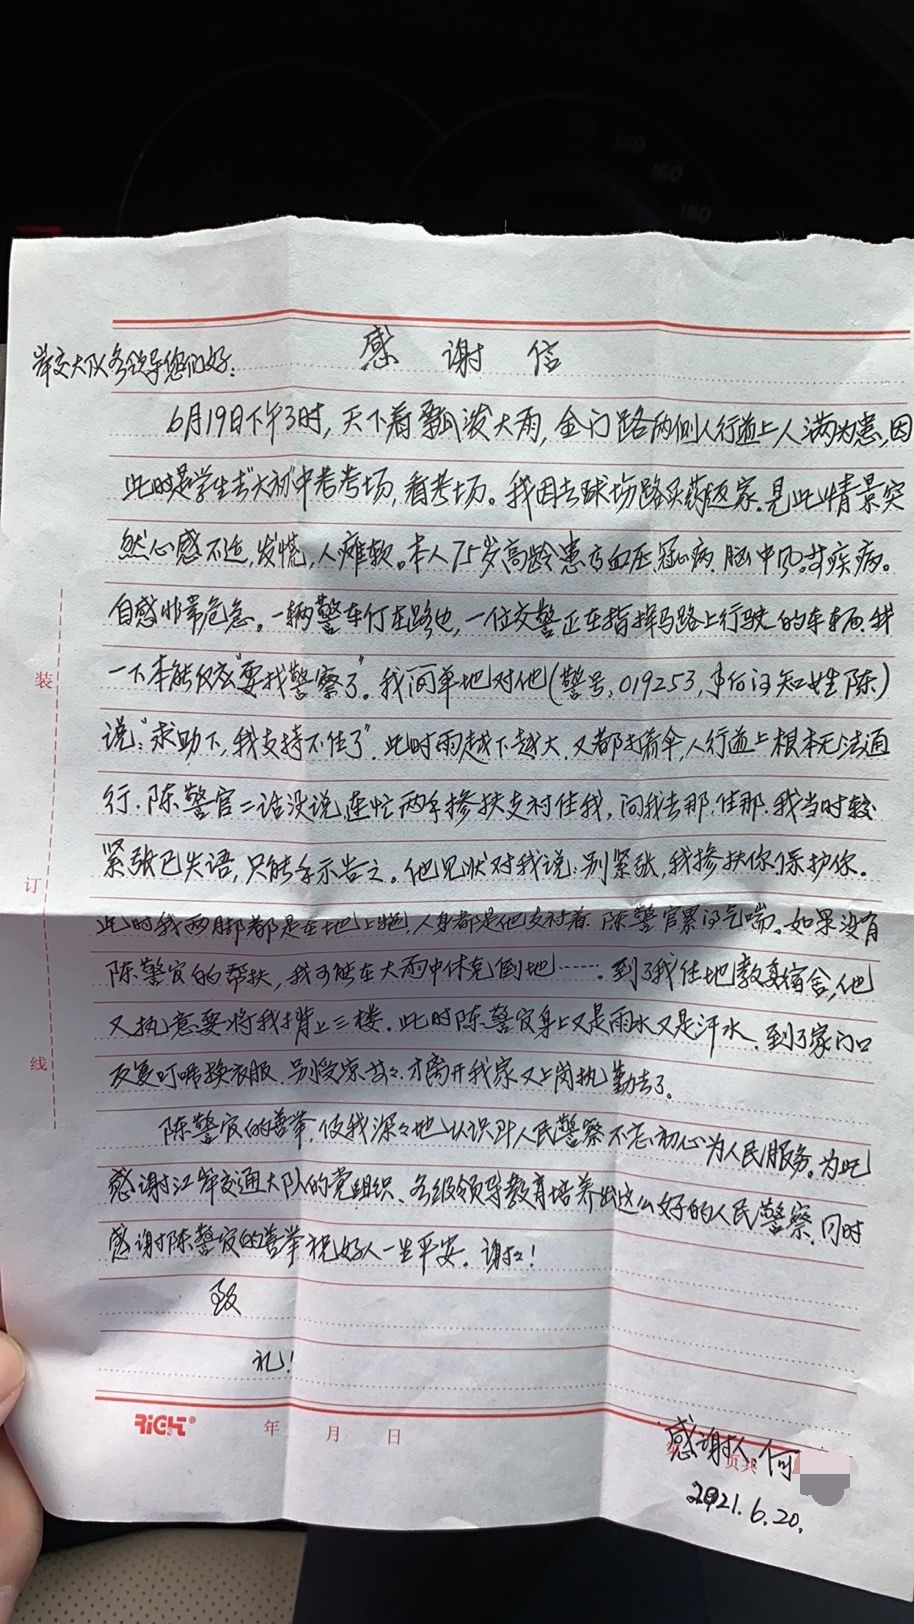 感谢信
岸交大队各领导您们好:
6月19日下午3时,天下着瓢泼大雨,金门路两侧人行道上人满为患,因
此时是学生去"大林"中考考场,看考场。我因去球场路买药返家.见此情景突
然心感不适,发慌,人瘫软。本人75岁高龄患高血压、冠心病、脑中风等疾病。
自感非常危急。一辆警车停在路边,一位交警正在指挥马路上行驶的车辆.我
一下本能反应"要找警察了"。我简单地对他(警号,019253,事后得知姓陈)
说:"求助下,我支持不住了".此时雨越下越大.又都打着伞,人行道上根本无法通
行.陈警官二话没说,连忙两手搀扶支衬住我,问我去那.住那.我当时较
紧张已失语,只能手示告之。他见状对我说:别紧张,我搀扶你.保护你。
此时我两脚都是在地上拖,人身都是他支衬着.陈警官累得气喘。如果没有
陈警官的帮扶,我可能在大雨中休克倒地……。到了我住地教委宿舍,他
又执意要将我背上三楼.此时陈警官身上又是雨水又是汗水.到了家门口
反复叮嘱换衣服.别受凉云々.才离开我家又上岗执勤去了。
陈警官的善举.使我深々地认识到人民警察不忘初心为人民服务。为此
感谢江岸交通大队的党组织、各级领导教育培养出这么好的人民警察.同时
感谢陈警官的善举祝好人一生平安。谢々!
致
礼!
装
订
线
RiCHT®
年 月 日
页共
感谢人:何
2021.6.20.